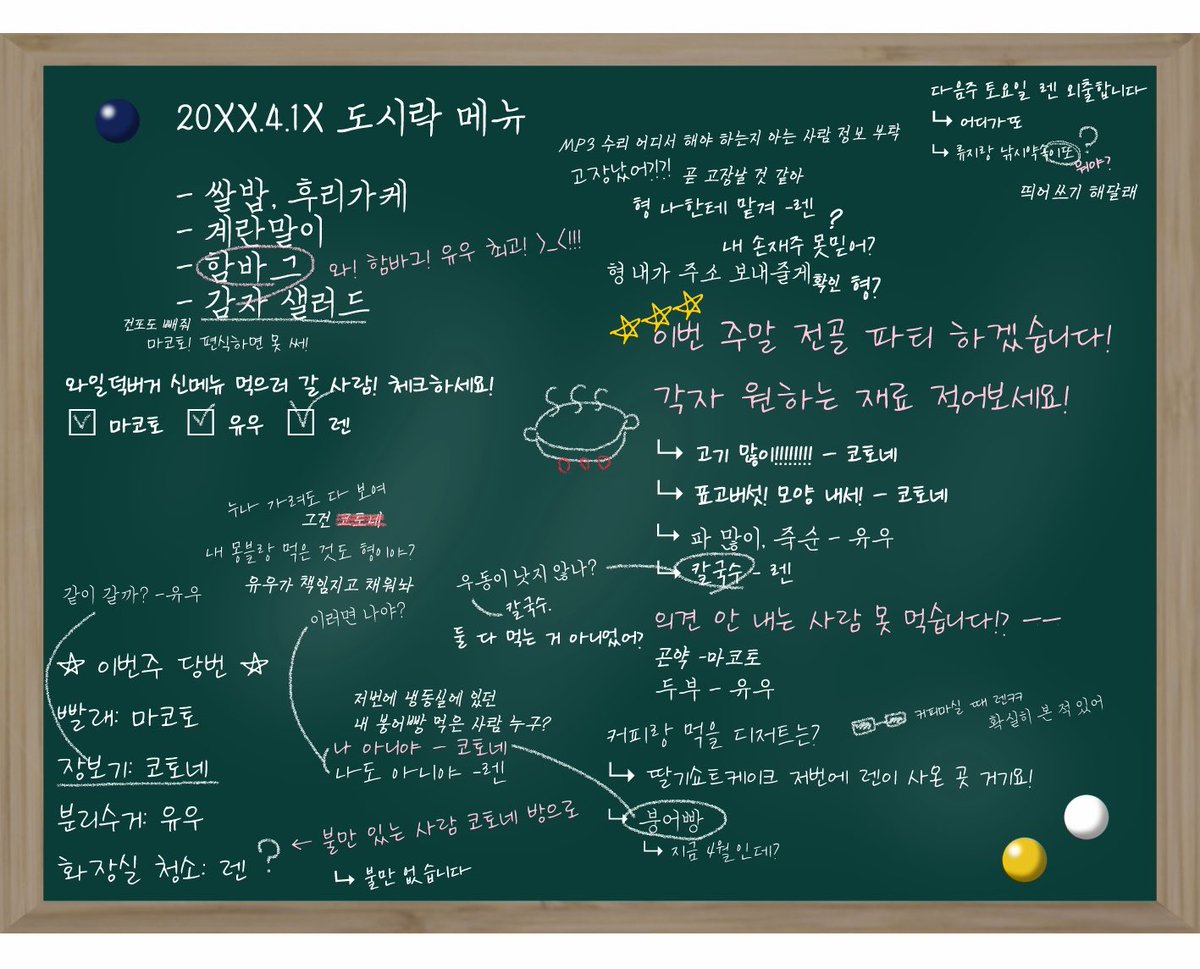 20XX.4.1X 도시락 메뉴
- 쌀밥, 후리가케
- 계란말이
- 함바그
와! 함바그! 유우 최고! >_<!!!
- 감자 샐러드
건포도 빼줘
마코토! 편식하면 못 써!
와일덕버거 신메뉴 먹으러 갈 사람! 체크하세요!
마코토 유우 렌
다음주 토요일 렌 외출합니다
어디가또
류지랑 낚시약속이또
?
뭐야?
띄어쓰기 해달래
MP3 수리 어디서 해야 하는지 아는 사람 정보 부탁
고장났어?!?! 곧 고장날 것 같아
형 나한테 맡겨 -렌
?
내 손재주 못믿어?
형 내가 주소 보내줄게 확인 형?
이번 주말 전골 파티 하겠습니다!
각자 원하는 재료 적어보세요!
고기 많이!!!!!!!!! - 코토네
표고버섯! 모양 내서! - 코토네
파 많이, 죽순 - 유우
칼국수 - 렌
우동이 낫지 않나?
칼국수.
둘 다 먹는 거 아니었어?
의견 안 내는 사람 못 먹습니다!? --
곤약 -마코토
두부 - 유우
커피랑 먹을 디저트는?
커피마실 때 렌ㅋㅋ
확실히 본 적 있어
딸기쇼트케이크 저번에 렌이 사온 곳 거기요!
붕어빵
지금 4월인데?
누나 가려도 다 보여
그건 코토네
내 몽블랑 먹은 것도 형이야?
유우가 책임지고 채워놔
이러면 나야?
저번에 냉동실에 있던
내 붕어빵 먹은 사람 누구?
나 아니야 - 코토네
나도 아니야 -렌
같이 갈까? -유우
☆ 이번주 당번 ☆
빨래: 마코토
장보기: 코토네
분리수거: 유우
화장실 청소: 렌 ?
← 불만 있는 사람 코토네 방으로
불만 없습니다